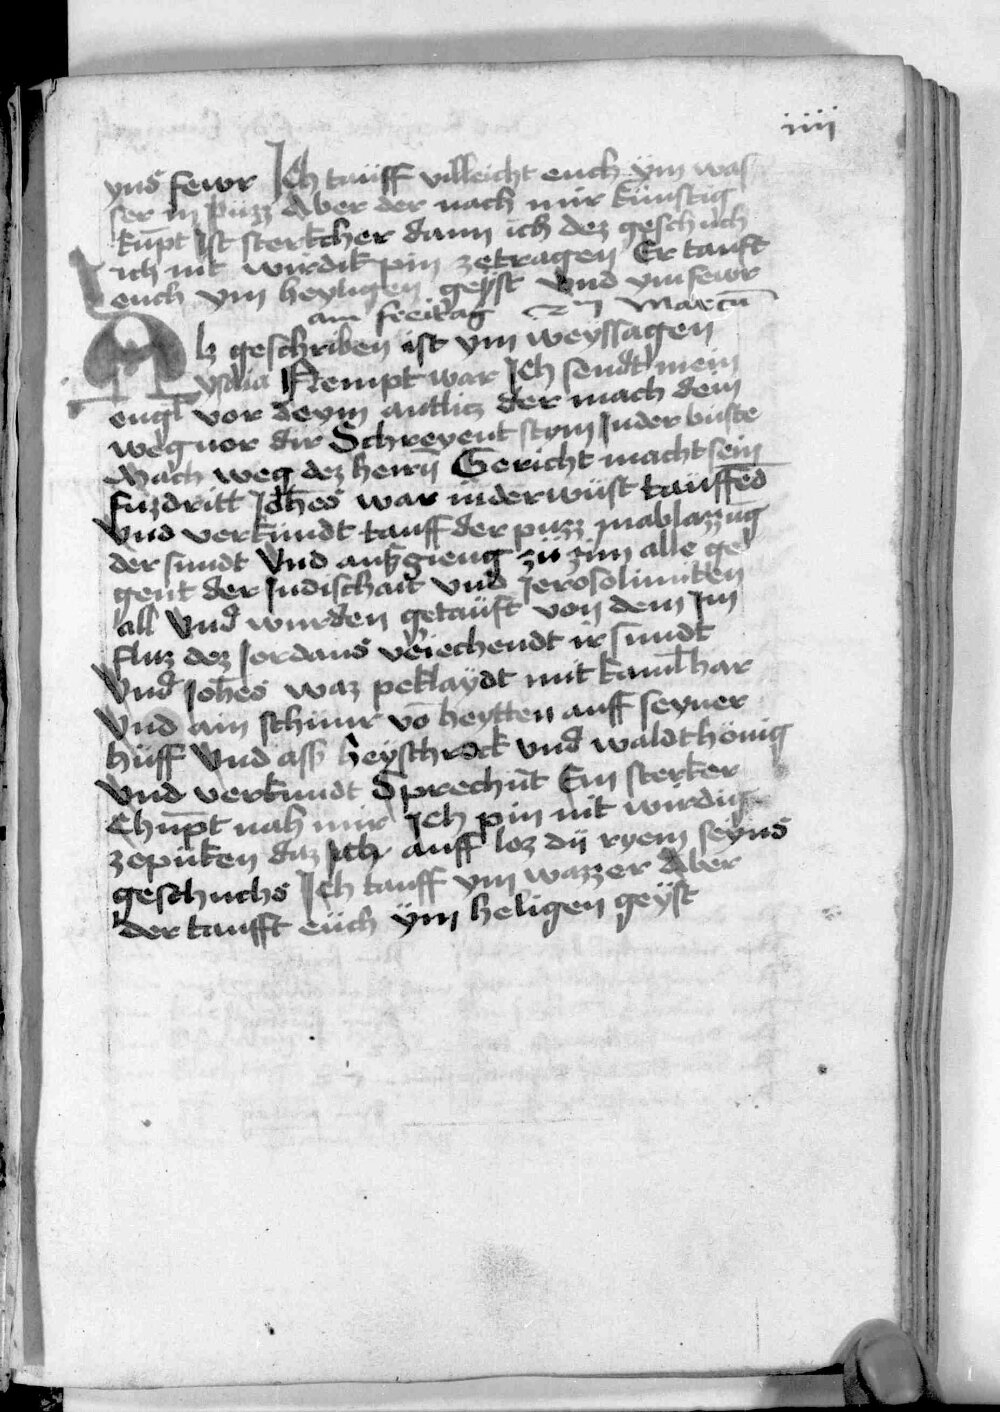 iiii
yns fewr Ich tauff villeicht euch ym was
ser in puzz Aber der nach mir künftig
kupt Ist sterkcher dann ich dez geschuch
ich nit wirdik pin zetragen Er tauft
euch ym heyligen geyst Vnd ym fewr
am freitag Marcū
Alz geschriben ist ym weyssagen
ysaia Nempt war Ich sendt mein
engl vor deym antlicz der mach dem
weg vor dir Schreyent stym In der buste
Mach weg dez herrn Gericht macht sein
fuzdritt Johes war in der wüst tauffēd
Vnd verkündt tauff der puzz in ablazzug
der sundt Vnd auzgieng zü zim alle ge
gent der Judischait vnd Jerosolimiten
all Vnd wurden getauft von dem Im
fluz dez Jordans veriechendt ir sundt
Vnd Johes waz peklaydt mit kamlhar
Vnd ain schnur vō heytten auff seyner
hüff Vnd ass heyschrock vnd waldthönig
Vnd verkundt Sprechūt Ein sterker
Chupt nah mir Ich pin nit wirdig
zepuken daz Ich auff loz dy ryem seyns
geschuchs Ich tauff ym wazzer Aber
der taufft eüch ym heligen geyst